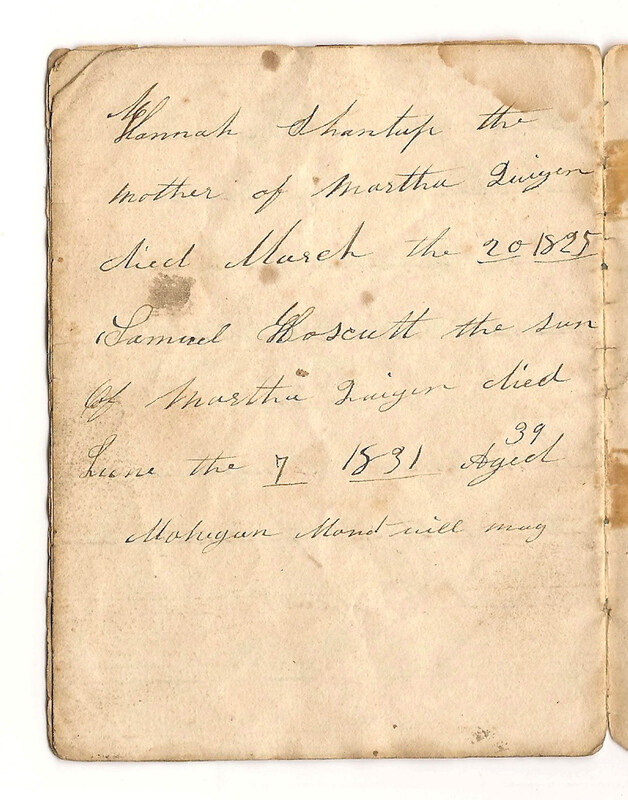 Hannah Shantup the
mother of Martha Quigen
died March the 20 1825
Samuel Hoscutt the sun
Of Martha Quigen died
June the 7 1831 Aged 39
Mohegan Mont vill may